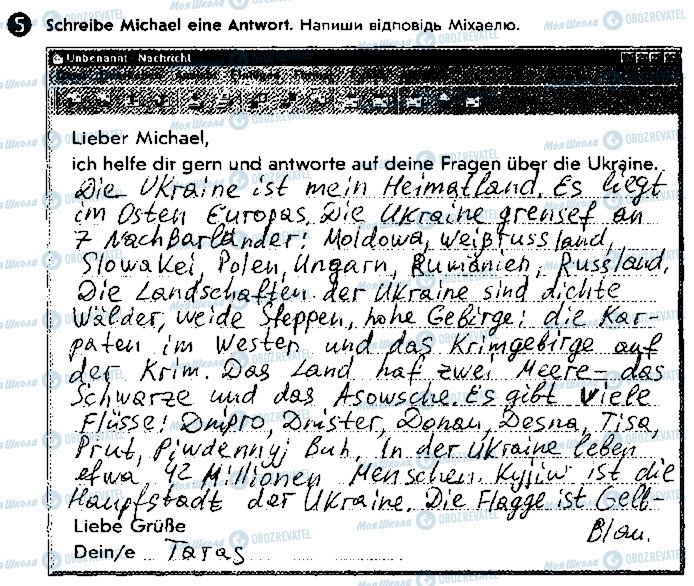 5 Schreibe Michael eine Antwort. Напиши відповідь Міхаелю.
Unbenannt - Nachricht
Lieber Michael,
ich helfe dir gern und antworte auf deine Fragen über die Ukraine.
Die Ukraine ist mein Heimatland. Es liegt
im Osten Europas. Die Ukraine grenset an
7 Nachbarländer: Moldowa, Weißrussland,
Slowakei, Polen, Ungarn, Rumänien, Russland.
Die Landschaften der Ukraine sind dichte
Wälder, weide Steppen, hohe Gebirge: die Kar-
paten im Westen und das Krimgebirge auf
der Krim. Das Land hat zwei Meere - das
Schwarze und das Asowsche. Es gibt viele
Flüsse: Dnipro, Dnister, Donau, Desna, Tisa,
Prut, Piwdennyj Buh. In der Ukraine leben
etwa 42 Millionen Menschen. Kyjiw ist die
Haupfstadt der Ukraine. Die Flagge ist Gelb-
Blau.
Liebe Grüße
Dein/e Taras
Моя Школа OBOZREVATEL